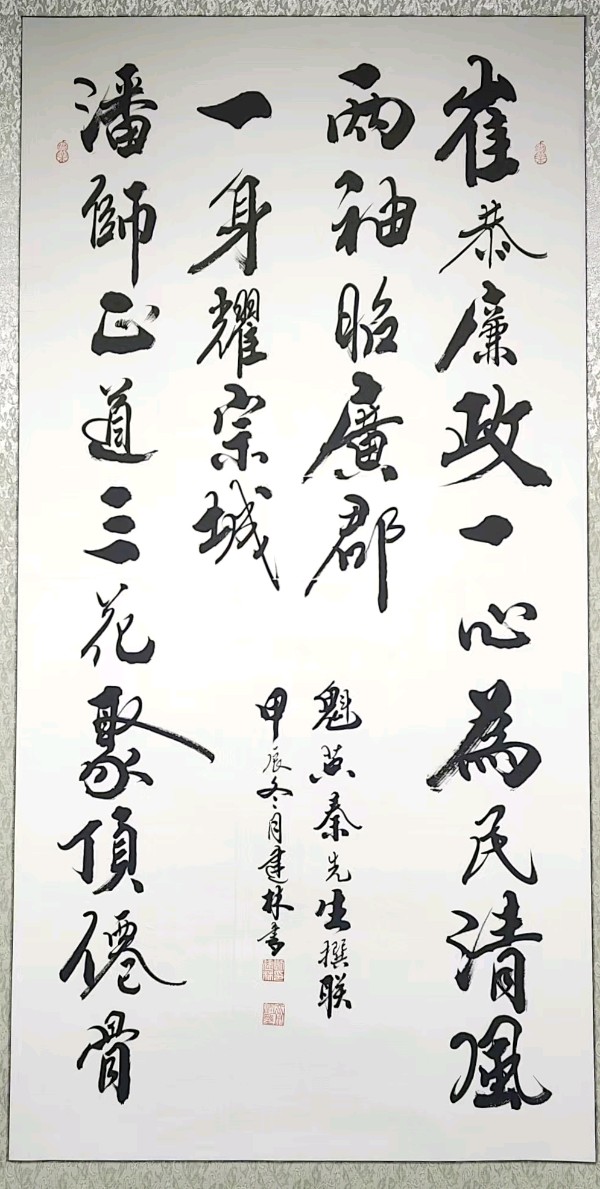 崔恭廉政一心為民清風
兩袖昭廣郡
潘師正道三花聚頂僊骨
一身耀宗城
魁秦先生撰联
甲辰冬月建林書